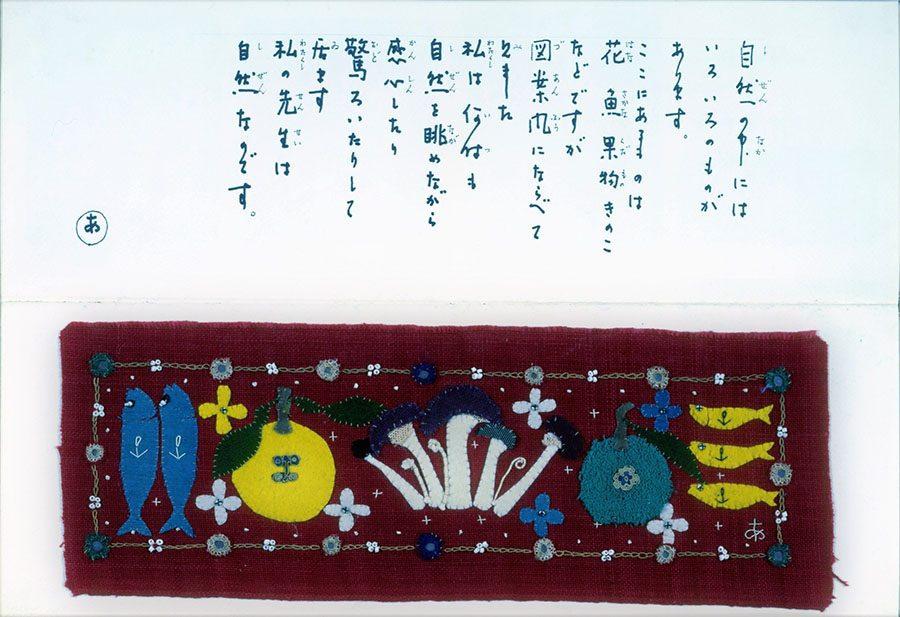 自然の中には
いろいろのものが
あります。
ここにあるものは
花 魚 果物 きのこ
などですが
図案風にならべて
見ました
私は何時も
自然を眺めながら
感心したり
驚ろいたりして
居ます
私の先生は
自然なのです。
あ
あ